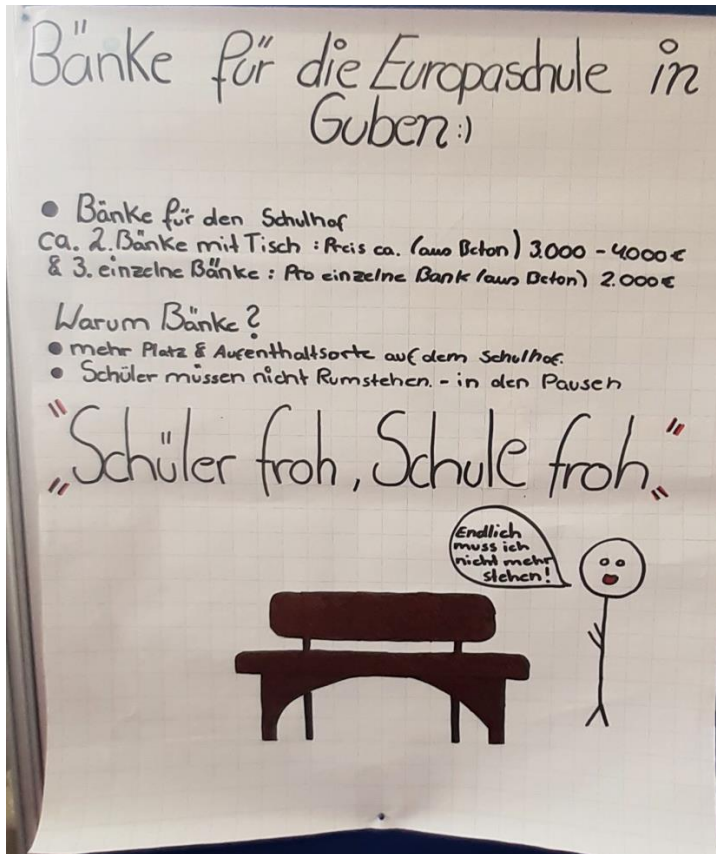 Bänke für die Europaschule in
Guben:)
• Bänke für den Schulhof
ca. 2. Bänke mit Tisch : Preis ca. (aus Beton) 3.000 - 4000€
& 3. einzelne Bänke : Pro einzelne Bank (aus Beton) 2.000€
Warum Bänke?
• mehr Platz & Aufenthaltsorte auf dem Schulhof.
• Schüler müssen nicht Rumstehen. - in den Pausen
"„Schüler froh, Schule froh."„
Endlich
muss ich
nicht mehr
stehen!